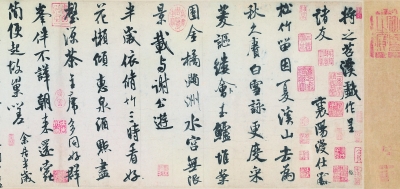 將之苕溪戲作呈
諸友
襄陽漫仕黻
松竹留因夏溪山去為
秋久賡白雪詠更度采
菱謳縷玉鱸堆案
團金橘滿洲水宮無限
景載與謝公遊
半歲依修竹三時看好
花懶傾惠泉酒點盡
壑源茶主席多同好群
峯伴不譁朝來還蠹
簡便起故巢嗟 余居半歲